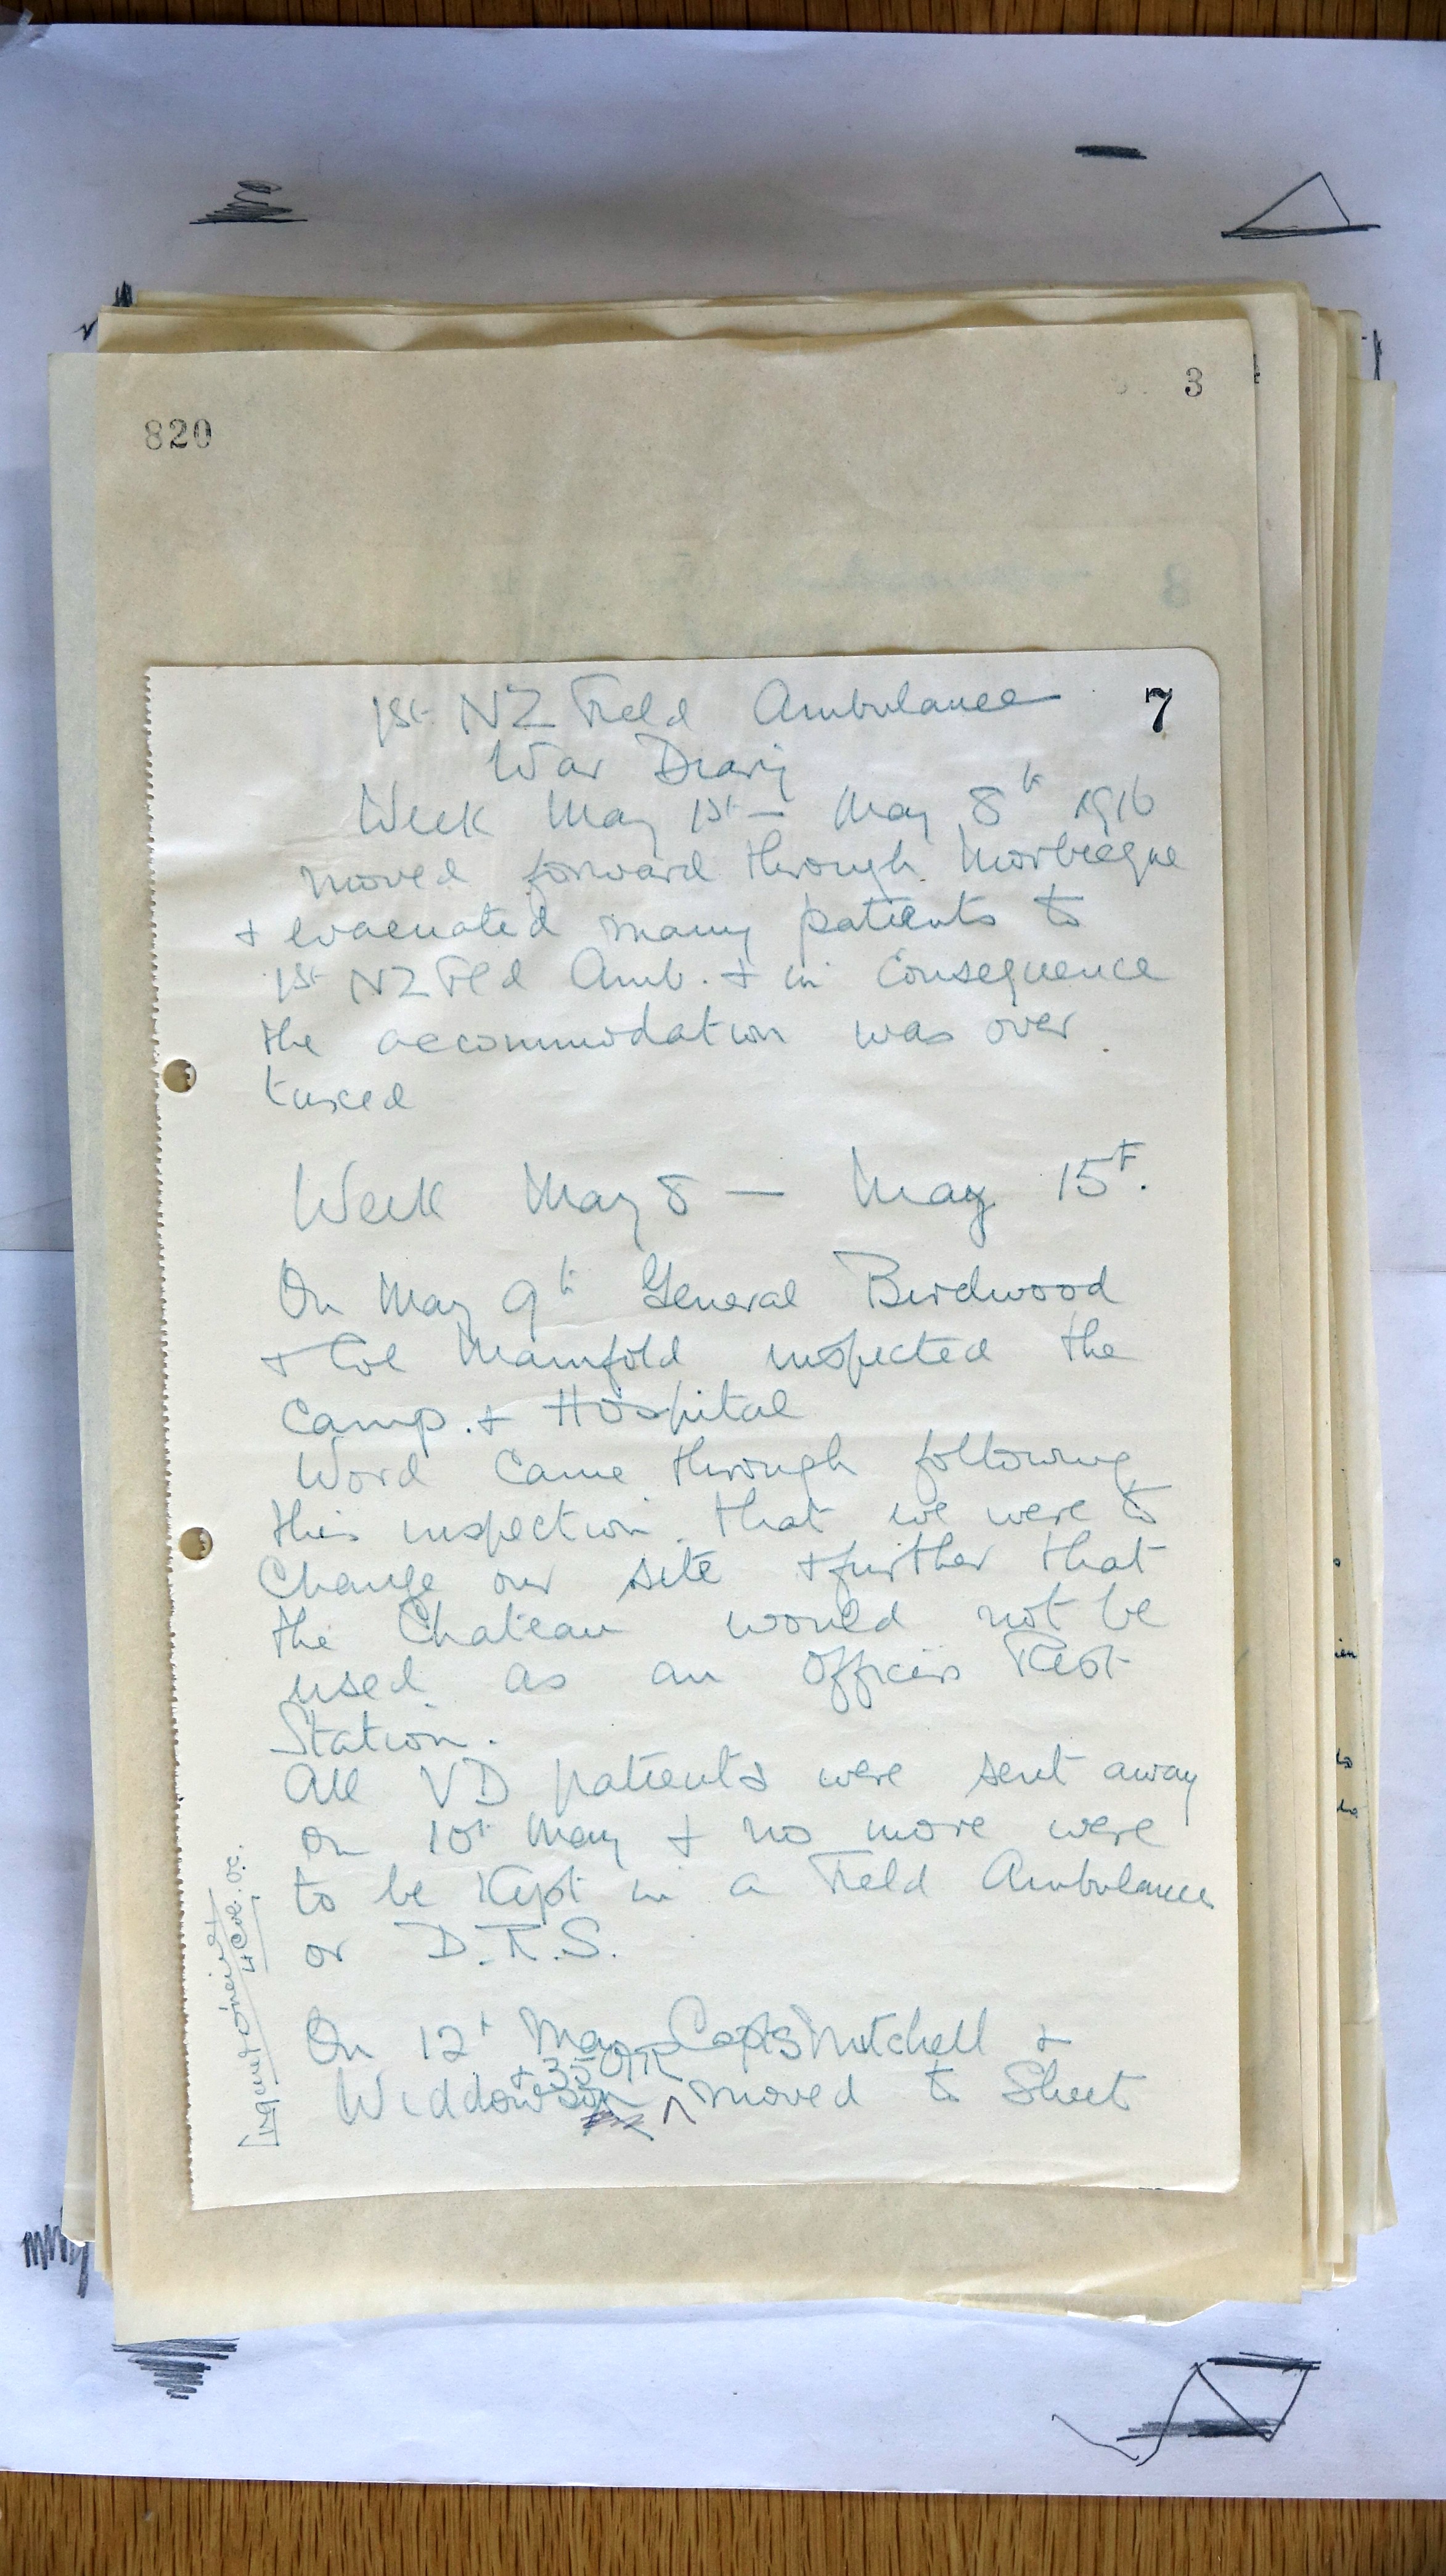 3
820
7
1st NZ Field Ambulance
War Diary
Week May 1st — May 8th 1916
moved forward through Morbecque
+ evacuated many patients to
1st NZ Fld Amb. + in consequence
the accommodation was over
taxed
Week May 8 — May 15th.
On May 9th General Birdwood
+ Col Manifold inspected the
Camp. + Hospital
Word came through following
this inspection that we were to
Change our site + further that
the Chateau would not be
used as an Officers Rest
Station.
All VD patients were sent away
on 10th May + no more were
to be Kept in a Field Ambulance
or D.R.S.
On 12th May Capts Mitchell +
+ 35 OR
Widdowson moved to Sheet